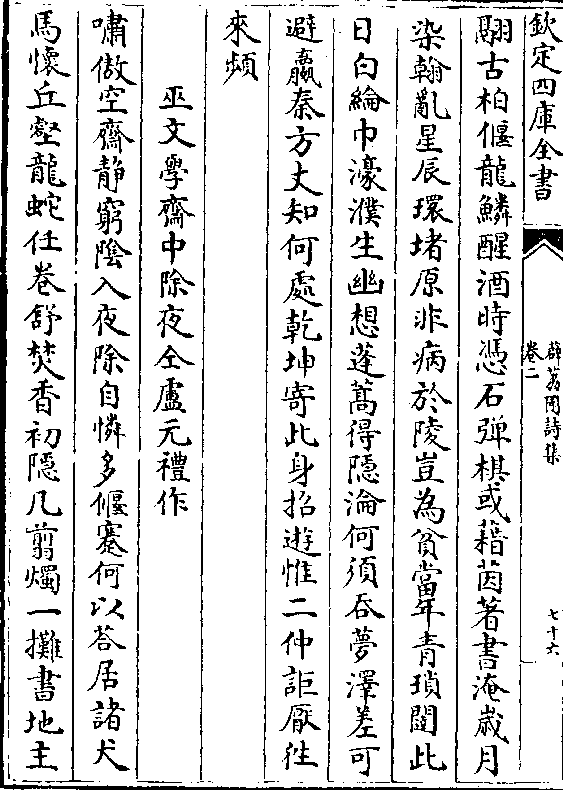 欽定四庫全書
薜荔園詩集
卷二
七十六
翾古柏偃龍鱗醒酒時憑石弹棋或藉茵著書淹歲月
染翰亂星辰環堵原非病於陵豈為貧當年青瑣闥此
日白綸巾濠濮生幽想蓬蒿得隠淪何須吞夢澤差可
避嬴秦方丈知何處乾坤寄此身招遊惟二仲詎厭徃
來頻
巫文學齋中除夜仝盧元禮作
嘯傲空齋静窮陰入夜除自憐多偃蹇何以荅居諸犬
馬懷丘壑龍蛇任卷舒焚香初隠几剪燭一攤書地主